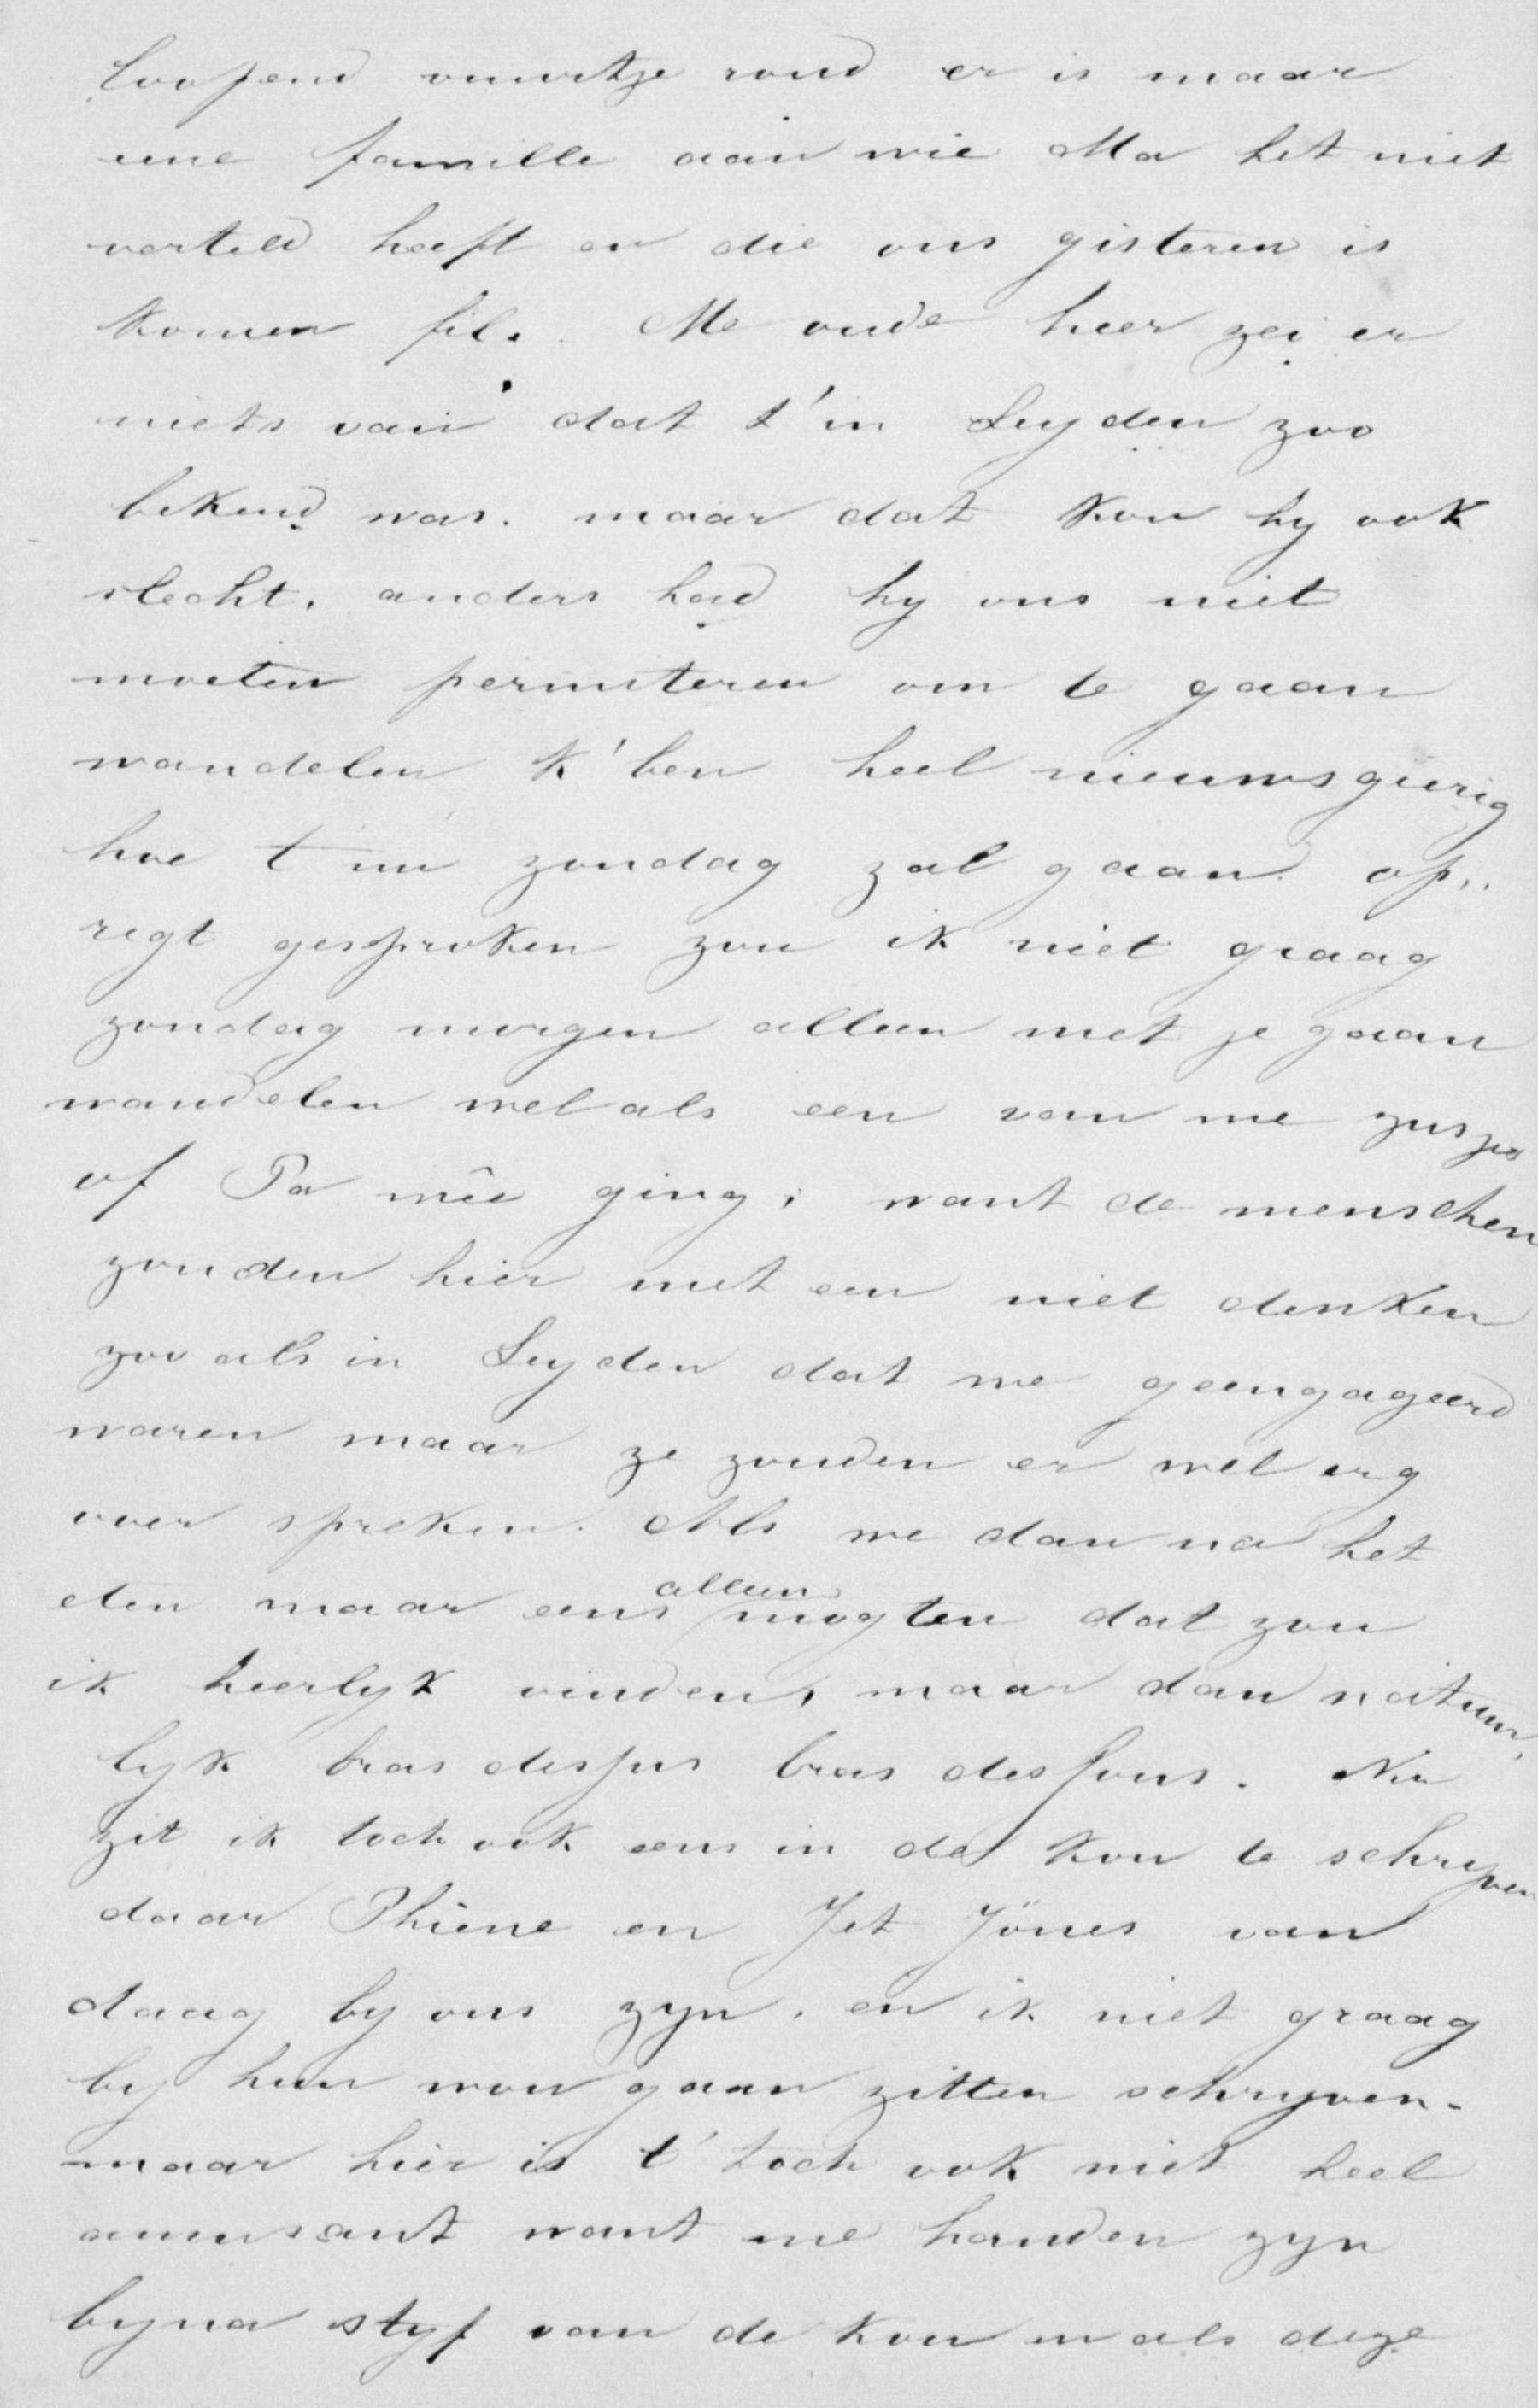 loopend vuurtje rond er is maar
eene famille aan wie Ma het niet
verteld heeft en die ons gisteren is
komen fil. Me oude heer zei er
niets van dat t'in Leyden zoo
bekend was. maar dat kon hy ook
slecht, anders had hy ons niet
moeten permitteren om te gaan
wandelen k'ben heel nieuwsgierig
hoe t nu zondag zal gaan. op„
regt gesproken zou ik niet graag
zondag morgen alleen met je gaan
wandelen wel als een van me zusjes
of Pa mêe ging, want de menschen
zouden hier met een niet denken
zoo als in Leyden dat we geengageerd
waren maar ze zouden er wel erg
over spreken. Als we dan na het
eten maar eens alleen mogten dat zou
ik heerlyk vinden, maar dan natuur,
lyk bras desfus bras desfous. Nu
zit ik toch ook eens in de kou te schryven
daar Phine en Jet Jönes van
daag by ons zyn, en ik niet graag
by hun wou gaan zitten schryven.
maar hier is t' toch ook niet heel
amusant want me handen zyn
byna styf van de kou en als deze